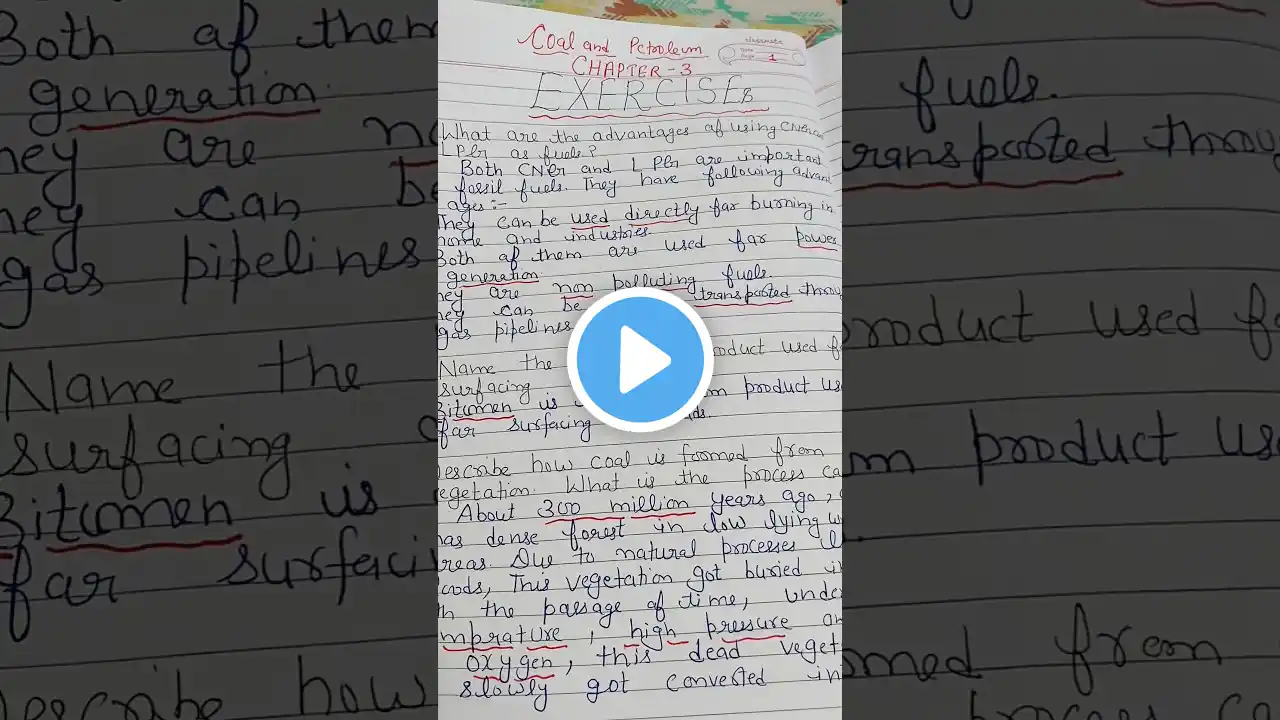 Coal and Petroleum
classmate
Date
Page 1
CHAPTER-3
EXERCISES
What are the advantages of using CNG and
LPG as fuels?
Both CNG and LPG are important
fossil fuels. They have following advant
ages :-
hey can be used directly for burning in
home and industries
Both of them are used for power
generation.
hey are non polluting fuels.
hey can be transported throu
gas pipelines
Name the oduct used f
surfacing
Bitumen is m product use
for surfacing ads.
escribe how coal is formed from
egetation. What is the process ca
About 300 million years ago,
as dense forest in low lying w
reas. Due to natural processes li
oods, This vegetation got buried i
h the passage of time, unde
mprature, high pressure an
oxygen, this dead veget
slowly got converted in